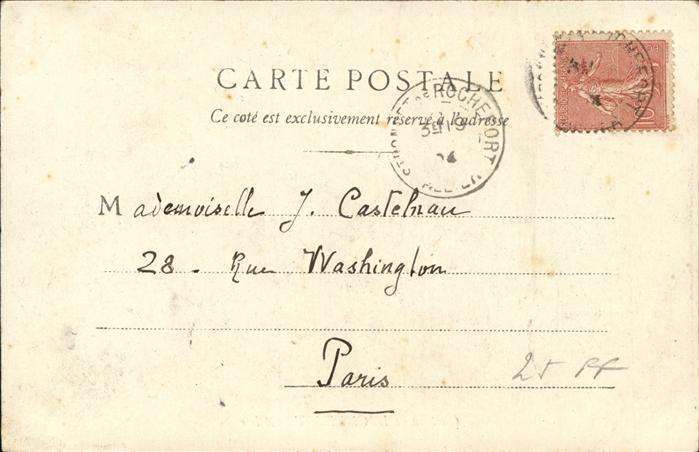 CARTE POSTALE
Ce coté est exclusivement réservé à l'adresse
ROCHEFORT
Mademoiselle J. Castelnau
28 - Rue Washington
Paris